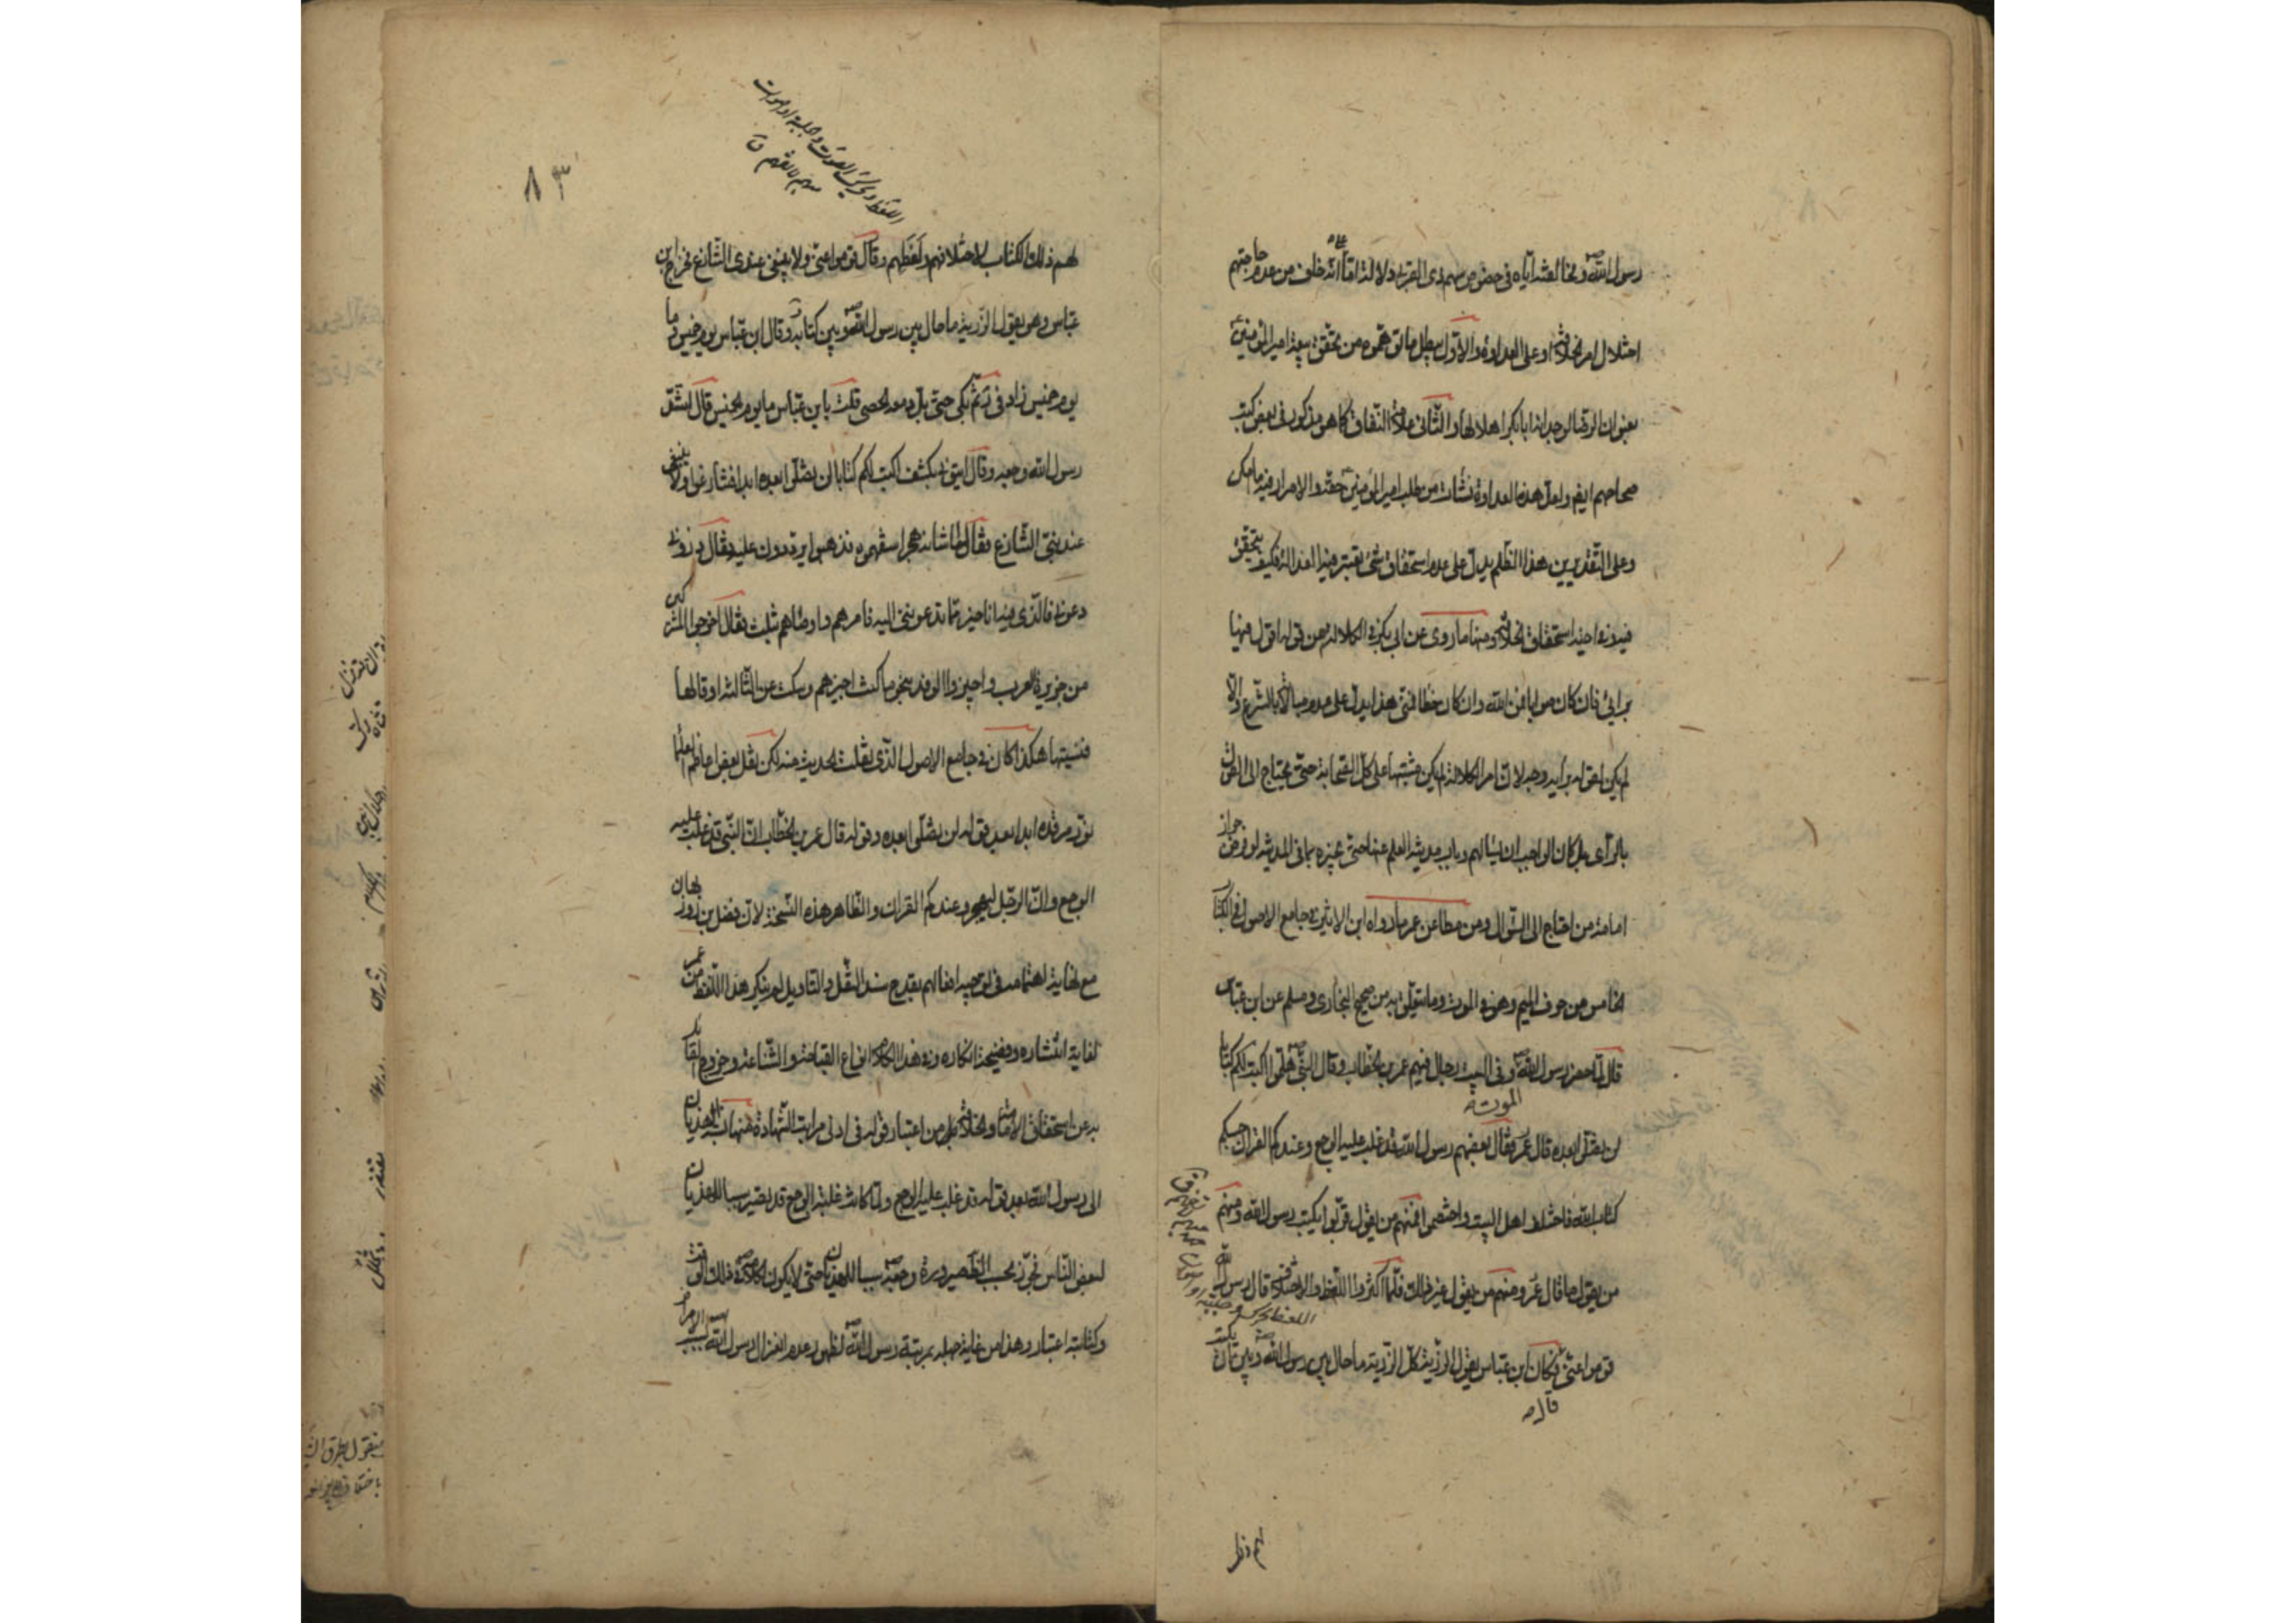 رسول الله ص ومخالفته اياه في خصوص سهم ذي القربى دلالة اما انه خلف من عدم حاجتهم
اختلال امر الخلافة او على العداوة والاول يبطل ما توهموه من تحقق بيعة امير المؤمنين ع
بعنوان الرضا لوجدانه ابابكر اهلا لها والثاني علامة النفاق كما هو مذكور في بعض كتب
صحاحهم ايضا ولعل هذه العداوة نشأت من طلب امير المؤمنين ع حقه والامرار فيه ما امكن
وعلى التقديرين هذا الظلم يدل على عدم استحقاق شئ يعتبر فيه العدالة فكيف يتحقق
فيه استحقاق الخلافة ومنها ما روى عن ابي بكر في الكلالة من قوله اقول فيها
برايي فان كان صوابا فمن الله وان كان خطأ فمني هذا يدل على عدم مبالاته بالشرع والا
لم يكن لقوله برأيه وجه لان امر الكلالة لم يكن مشتبها على كل الصحابة حتى يحتاج الى القول
بالرأي بل كان الواجب ان يسألهم وباب مدينة العلم عنها حتى يخبره بما في المدينة لو فرض جواز
امامة من احتاج الى السؤال ومن مطاعن عمر ما رواه ابن الاثير في جامع الاصول في الكتاب
الخامس من حرف الميم وهو في الموت وما يتعلق به من صحيح البخاري ومسلم عن ابن عباس
قال لما حضر رسول الله ص وفي البيت رجال فيهم عمر بن الخطاب وقال النبي ص هلموا اكتب لكم كتابا
الموت
لن تضلوا بعده قال عمر وقال بعضهم رسول الله قد غلب عليه الوجع وعندكم القرآن حسبكم
كتاب الله فاختلف اهل البيت واختصموا فمنهم من يقول قربوا يكتب رسول الله ومنهم
من يقول ما قال عمر ومنهم من يقول غير ذلك فلما اكثروا اللغط والاختلاف قال رسول الله
قوموا عني فكان ابن عباس يقول الرزية كل الرزية ما حال بين رسول الله ص وبين ان يكتب
قال
لهم ذلك
٨٣
لهم ذلك الكتاب لاختلافهم ولغطهم وقال قوموا عني ولا ينبغي عندي التنازع فخرج ابن
عباس وهو يقول الرزية ما حال بين رسول الله ص وبين كتابه وقال ابن عباس يوم خميس وما
يوم خميس زاد في ثم بكى حتى بل دمعه الحصى قلت يا ابن عباس ما يوم الخميس قال اشتد
رسول الله وجعه وقال ايتوني بكتف اكتب لكم كتابا لن تضلوا بعده ابدا فتنازعوا ولا ينبغي
عند نبي التنازع فقالوا ما شانه هجر استفهموه فذهبوا يرددون عليه فقال ذروني
دعوني فالذي فيه انا خير مما تدعونني اليه فامرهم واوصاهم بثلث فقال اخرجوا المشركين
من جزيرة العرب واجيزوا الوفد بنحو ما كنت اجيزهم وسكت عن الثالثة او قالها
فنسيتها هكذا كان في جامع الاصول الذي نقلت الحديث منه لكن نقل بعض اعاظم العلماء
نور مرقده ابدا بعد قوله لن تضلوا بعده وقوله قال عمر بن الخطاب ان النبي قد غلب عليه
الوجع وان الرجل ليهجر وعندكم القرآن والظاهر هذه النسخة لان فضل بن روزبهان
مع غاية اهتمامه في توجيه افعالهم بقدح سند النقل والتاويل لم ينكر هذا اللفظ من عمر
لغاية انتشاره وفضيحة انكاره وفي هذا الكلام انواع القباحة والشناعة وخروج القائل
به عن استحقاق الامامة والخلافة بل من اعتبار قوله في ادنى مراتب الشهادة فمنها نسبة الهذيان
الى رسول الله بعد قوله قد غلب عليه الوجع ولما كانت غلبة الوجع قد يصير سببا للهذيان
لبعض الناس نجوز بحسب الظاهر صيرورة وجعه ص سببا للهذيان حتى لا يكون لكلامه ص في ذلك الوقت
وكتابته اعتبار وهذا من غاية جهله بمرتبة رسول الله ص لظهور عدم انعزال رسول الله بسبب الامراض